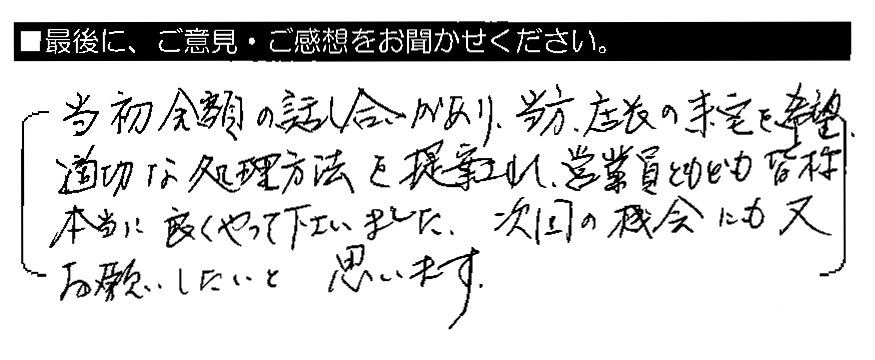 ■最後に、ご意見・ご感想をお聞かせください。
当初金額の話し合いがあり、当方、店長の来宅を希望、
適切な処理方法を提案され、営業員ともども皆様
本当に良くやって下さいました。次回の機会にも又
お願いしたいと思います。